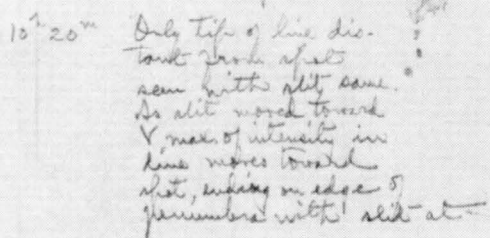 10h 20m Only tip of line dis-
tant from spot
seen with slit same.
As slit moved toward
V max. of intensity in
line moves toward
spot, ending on edge of
penumbra with slit at